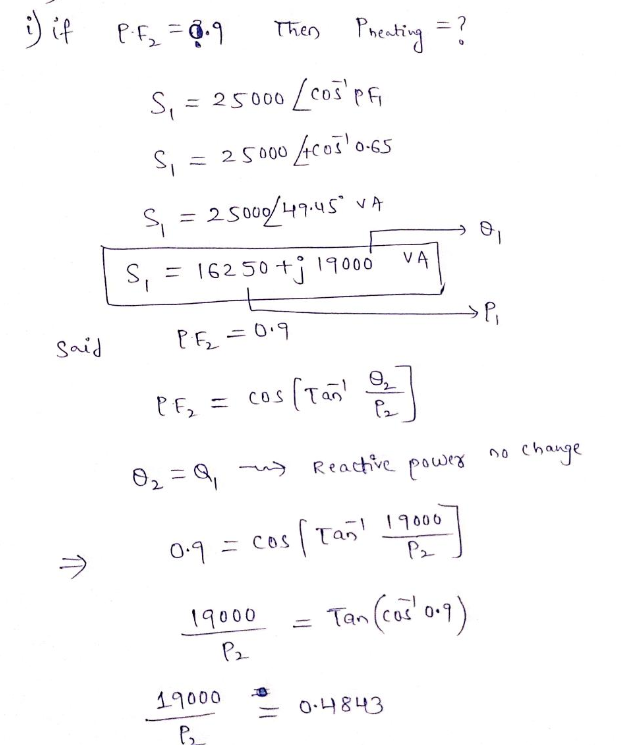 i) if P.F₂ = 0.9 Then Pheating = ?
S₁ = 25000 ∠cos⁻¹ PF₁
S₁ = 25000 ∠+cos⁻¹ 0.65
S₁ = 25000∠49.45° VA
S₁ = 16250 + j 19000 VA → Q₁
→ P₁
Said P.F₂ = 0.9
PF₂ = cos [Tan⁻¹ Q₂/P₂]
Q₂ = Q₁ → Reactive power no change
⇒ 0.9 = cos [Tan⁻¹ 19000/P₂]
19000/P₂ = Tan (cos⁻¹ 0.9)
19000/P₂ = 0.4843